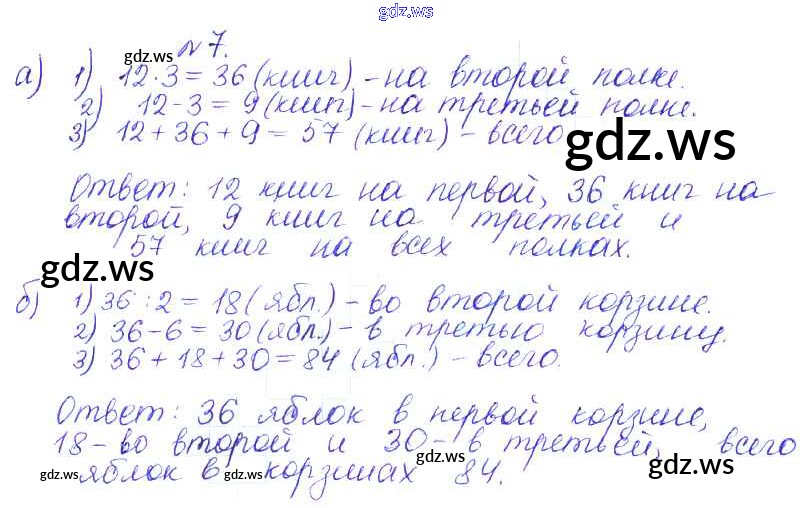 gdz.ws
№ 7.
gdz.ws
а) 1) 12·3 = 36 (книг) - на второй полке.
2) 12-3 = 9 (книг) - на третьей полке.
3) 12 + 36 + 9 = 57 (книг) - всего
gdz.ws
Ответ: 12 книг на первой, 36 книг на
второй, 9 книг на третьей и
57 книг на всех полках.
gdz.ws
б) 1) 36 : 2 = 18 (ябл.) - во второй корзине.
2) 36 - 6 = 30 (ябл.) - в третью корзину.
3) 36 + 18 + 30 = 84 (ябл.) - всего.
Ответ: 36 яблок в первой корзине,
18 - во второй и 30 - в третьей, всего
gdz.ws
яблок в корзинах 84.
gdz.ws
gdz.ws
gdz.ws